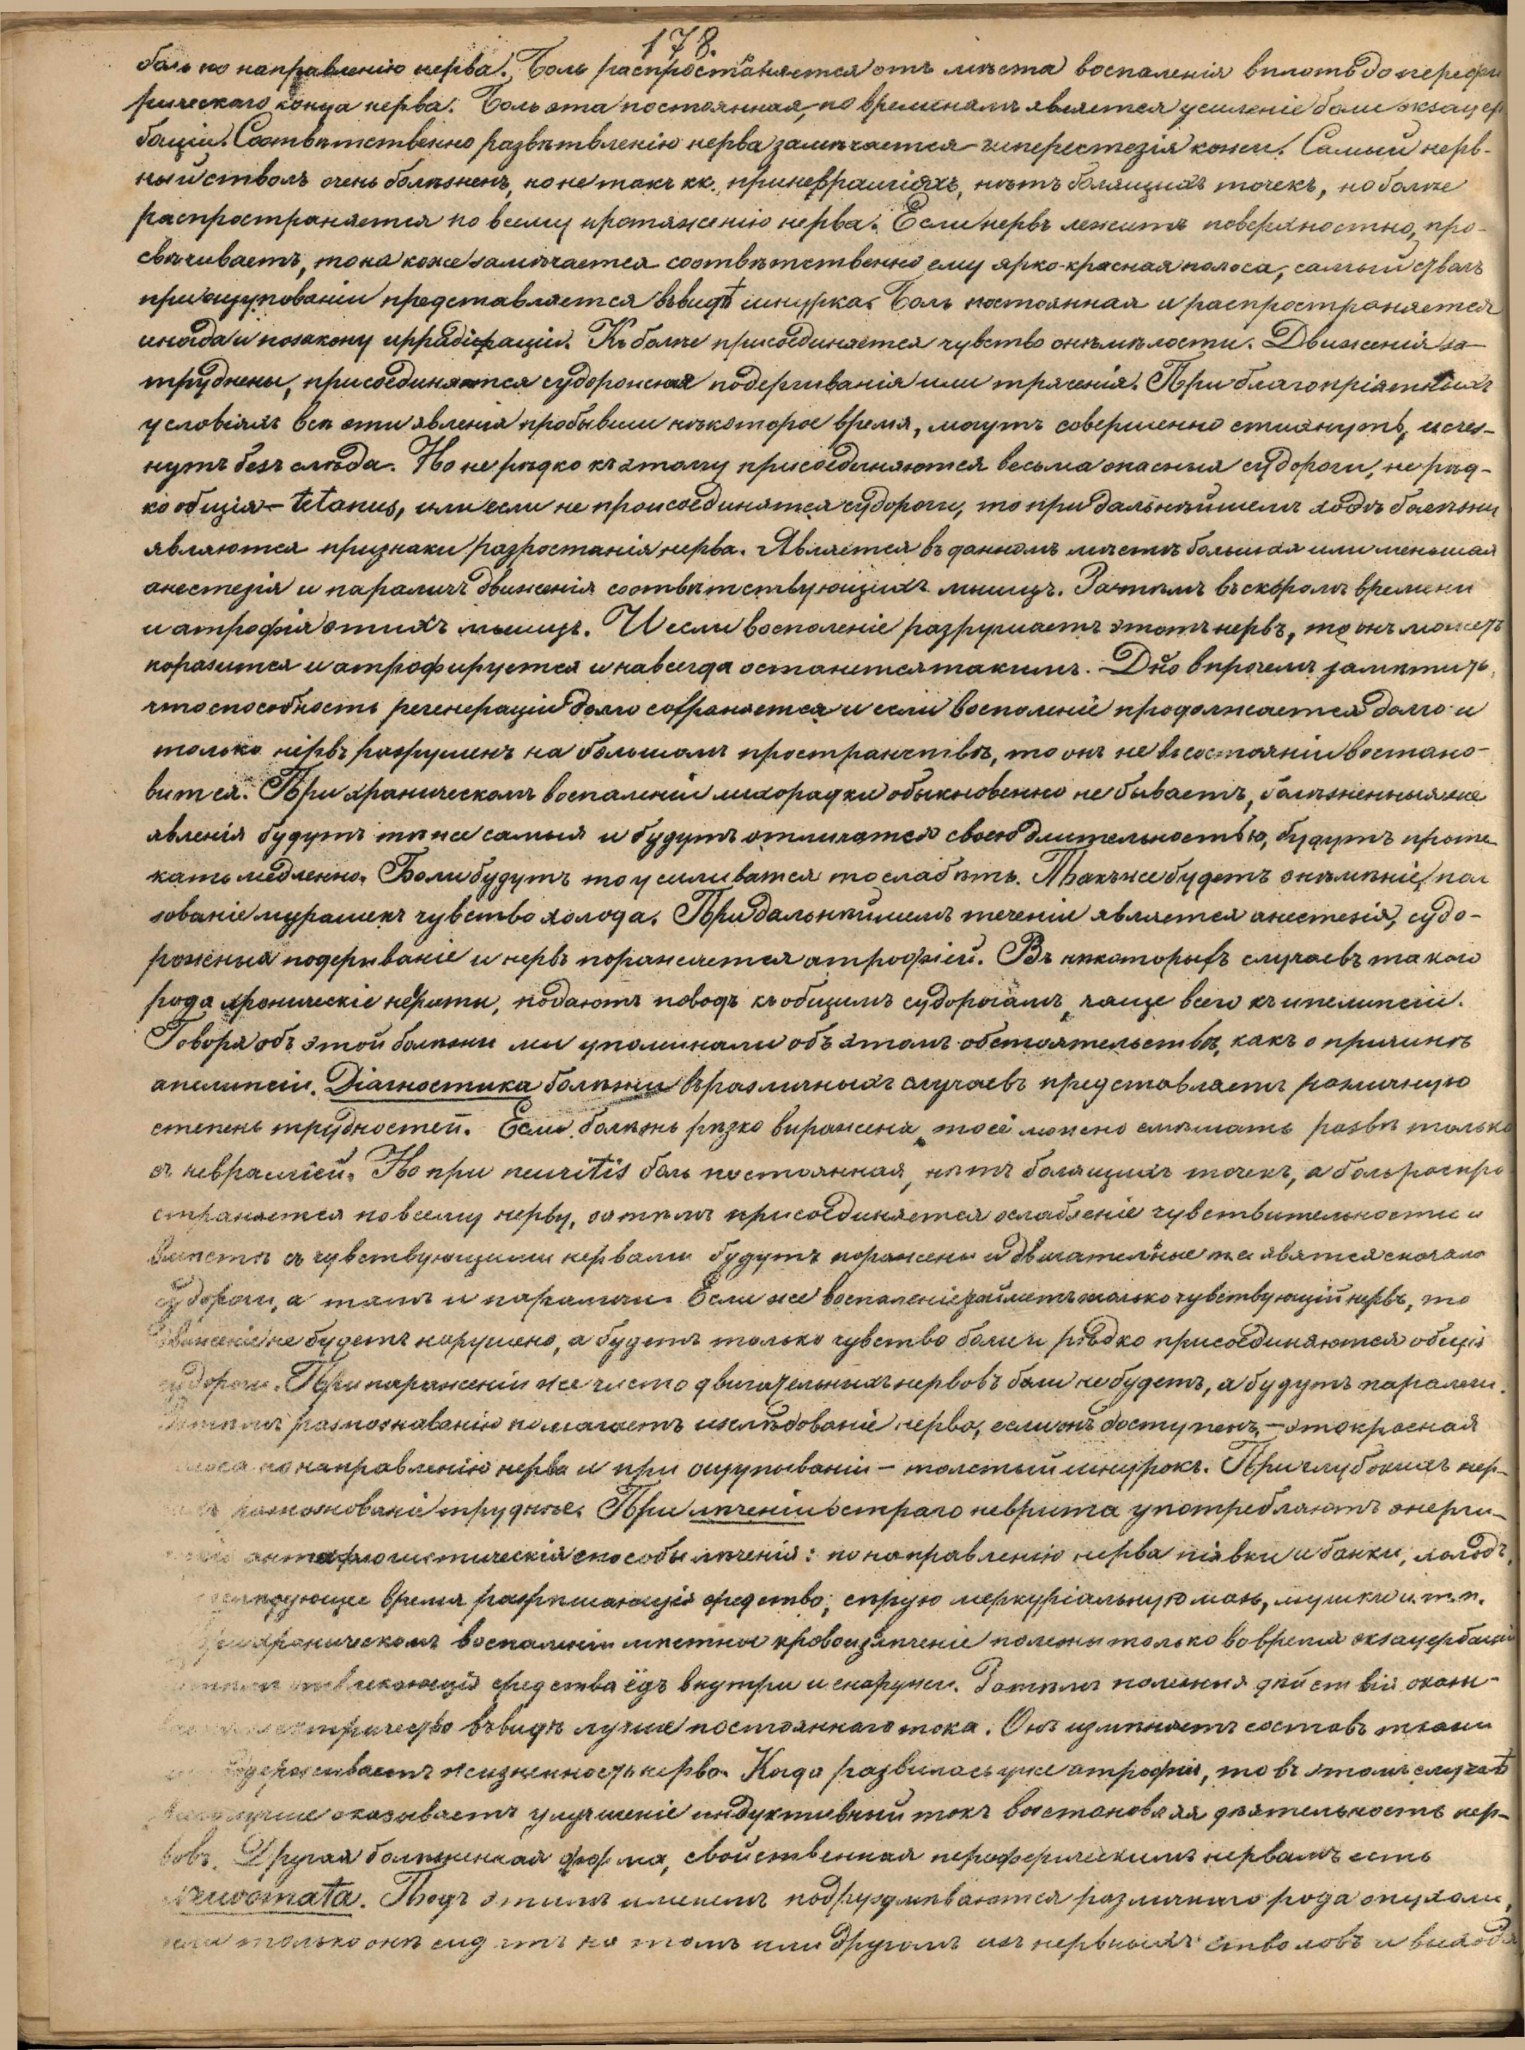 178.
боль по направленію нерва. Боль распространяется отъ мѣста воспаленія вплоть до перефи
рическаго конца нерва. Боль эта постоянная, по временамъ является усиленіе боли экзацер
баціи. Соотвѣтственно развѣтвленію нерва замѣчается гиперестезія кожи. Самый нерв-
ный стволъ очень болѣзненъ, но не такъ кк. при невралгіяхъ, нѣтъ болящихъ точекъ, но болѣе
распространяется по всему протяженію нерва. Если нервъ лежитъ поверхностно, про-
свѣчиваетъ, то на коже замѣчается соотвѣтственно ему ярко-красная полоса, самый стволъ
при ощупованіи представляется въ видѣ шнурка. Боль постоянная и распространяется
иногда и по закону иррадіраціи. Къ боли присоединяется чувство онѣмѣлости. Движенія за-
труднены, присоединяются судорожная подергиванія или трясенія. При благопріятныхъ
условіяхъ всѣ эти явленія пробывши нѣкоторое время, могутъ совершенно стихнуть, исчез-
нутъ безъ слѣда. Но не рѣдко къ этому присоединяются весьма опасныя судороги, не рѣд-
ко общія - tetanus, или если не присоединятся судороги, то при дальнѣйшемъ ходѣ болѣзни
являются признаки разростанія нерва. Является въ данномъ мѣстѣ большая или меньшая
анестезія и параличъ движенія соотвѣтствующихъ мышцъ. Затѣмъ въ скоромъ времени
и атрофія этихъ мышцъ. И если воспаленіе разрушаетъ этотъ нервъ, то онъ можетъ
поразится и атрофируется и навсегда останется такимъ. Дно впрочемъ замѣтить,
что способность регенераціи долго сохраняется и если воспаленіе продолжается долго и
только нервъ разрушенъ на большомъ пространствѣ, то онъ не въ состояніи востано-
вится. При храническомъ воспаленіи лихорадки обыкновенно не бываетъ, болѣзненныя же
явленія будутъ тѣ же самыя и будутъ отличатся своею длительностью, будутъ проте-
кать медленно. Боли будутъ то усиливатся то слабѣть. Такъ же будетъ онѣмѣніе, пол
зованіе мурашекъ чувство холода. При дальнѣйшемъ теченіи является анестезія, судо-
рожныя подергиваніе и нервъ поражается атрофіей. Въ нѣкоторыхъ случаевъ такого
рода хроническіе невриты, подаютъ поводъ къ общимъ судорогамъ, чаще всего къ эпелипсіи.
Говоря объ этой болѣзни мы упоминали объ этомъ обстоятельствѣ, какъ о причинѣ
эпелипсіи. Діагностика болѣзни въ различныхъ случаевъ представляетъ различную
степень трудностей. Если болѣзнь рѣзко выражена, то её можно смѣшать развѣ только
съ невралгіей. Но при neuritis боль постоянная, нѣтъ болящихъ точекъ, а боль распро
страняется по всему нерву, затѣмъ присоединяется ослабленіе чувствительности и
вмѣстѣ съ чувствующими нервами будутъ поражены и двигательные т.е. явятся сначала
судороги, а тамъ и параличи. Если же воспаленіе займетъ только чувствующій нервъ, то
движеніе не будетъ нарушено, а будетъ только чувство боли и рѣдко присоединяются общія
судороги. При пораженіи же чисто двигательныхъ нервовъ боли не будетъ, а будутъ параличи.
Затѣмъ распознаванію помагаетъ изслѣдованіе нерва, если онъ доступенъ, - это красная
полоса по направленію нерва и при ощупываніи - толстый шнурокъ. При глубокихъ нер-
вахъ распознованіе труднѣе. При лѣченіи остраго неврита употребляютъ энерги-
антифлогистическія способы лѣченія: по направленію нерва піявки и банки, холодъ,
время разрѣшающія средства, сѣрую меркуріальную мазь, мушки и т.п.
При храническомъ воспаленіи мѣстное кровоизвлеченіе полезны только во время экзацербаціи
отвлекающія средства ёдъ внутри и снаружи. Затѣмъ полезныя дѣйствія оказы-
электричество въ видѣ лучше постояннаго тока. Онъ измѣняетъ составъ ткани
поддерживаетъ жизненность нерва. Когда развилась уже атрофія, то въ этомъ случаѣ
оказываетъ улучшеніе индуктивный токъ востановляя дѣятельность нер-
вовъ. Другая болѣзненная форма, свойственная пероферическимъ нервамъ есть
Neuromata. Подъ этимъ именемъ подразумѣваются различнаго рода опухоли,
если только онѣ сидятъ на томъ или другомъ изъ нервныхъ стволовъ и выходя